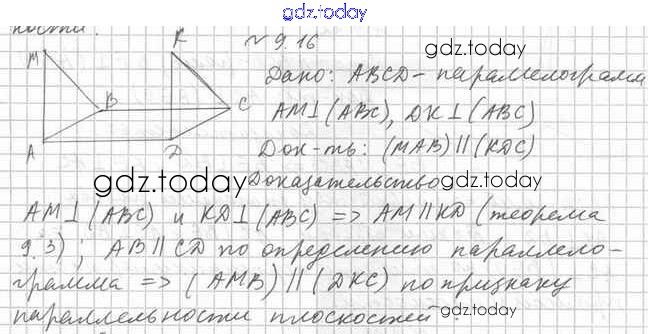 gdz.today
ности.
N 9.16
gdz.today
M
K
B
C
A
D
Дано: ABCD - параллелограмм
AM⊥(ABC), DK⊥(ABC)
Док-ть: (MAB)||(KDC)
gdz.today
Доказательство
gdz.today
AM⊥(ABC) и KD⊥(ABC) => AM||KD (теорема
9.3); AB||CD по определению параллело-
грамма => (AMB)||(DKC) по признаку
параллельности плоскостей
gdz.today